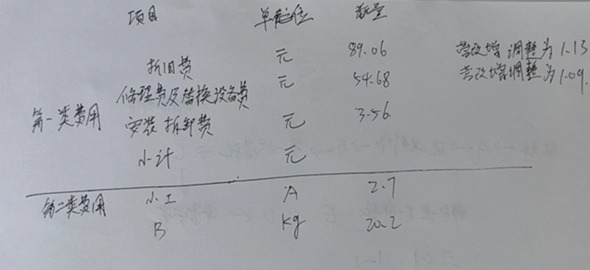 项目 单位 数量
折旧费 元 89.06 营改增调整为1.13
修理费及替换设备费 元 54.68 营改增调整为1.09.
第一类费用 安装拆卸费 元 3.56
小计 元
第二类费用 小工 A 2.7
B kg 20.2